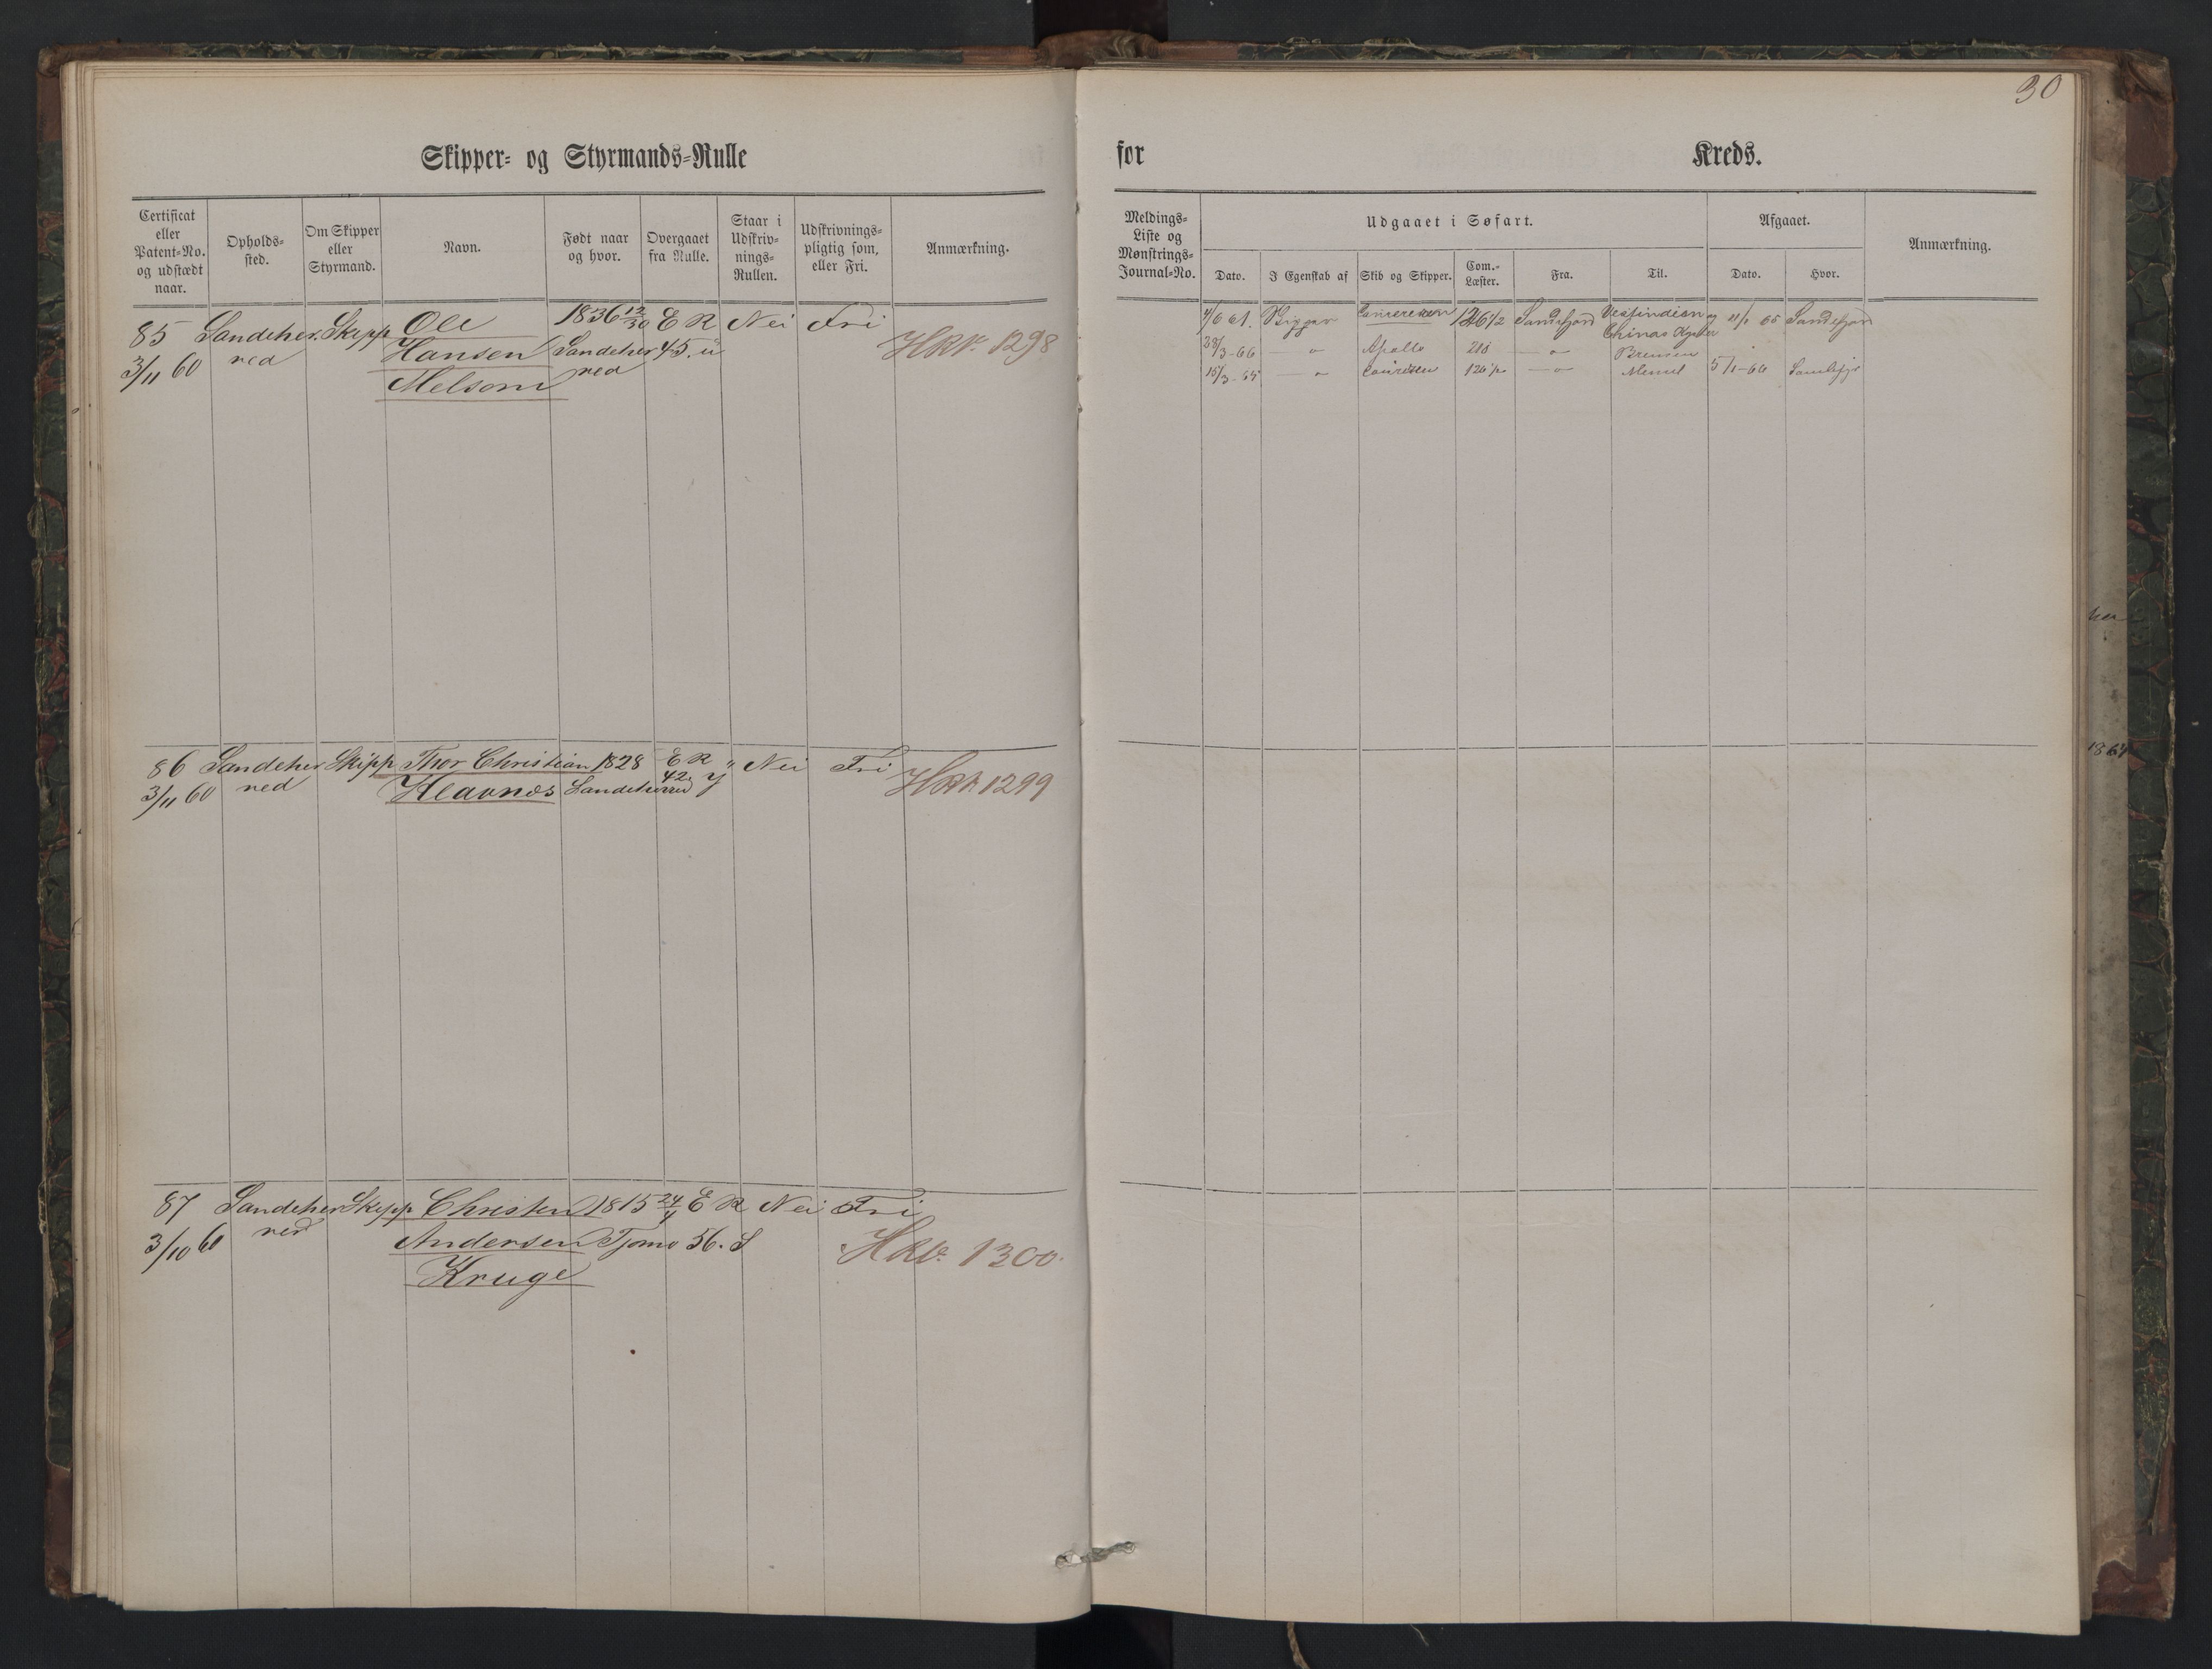 30
Skipper- og Styrmands-Rulle for Kreds.
Certificat eller Patent-No. og udstædt naar.
Opholds-sted.
Om Skipper eller Styrmand.
Navn.
Født naar og hvor.
Overgaaet fra Rulle.
Staar i Udskriv-nings-Rullen.
Udskrivnings-pligtig som, eller Fri.
Anmærkning.
Meldings-Liste og Mønstrings-Journal-No.
Udgaaet i Søfart.
Dato.
I Egenskab af
Skib og Skipper.
Com.-Læster.
Fra.
Til.
Afgaaet.
Dato.
Hvor.
Anmærkning.
85 Sandeher Skipp Ole 1836 12/30 E R Nei Fri
3/11 60 red Hansen Sandeher 45. ü HRV. 1298
Melsom red
61. 126 1/2 Sandefjord Vestindien og 65 Sandefjord
Chinas
28/3-66 Apollo 210 Bremen
15/3-65 126 1/2 Memel 5/1-66
86 Sandeher Skipp Thor Christian 1828 E R " Nei Fri
3/11 60 red Klavnes Sandeherred 42. y 1299
87 Sandeher Skipp Christen 1815 24/4 E R Nei Fri
3/10 60 red Andersen Tjømø 56. S
Kruge 1300.
1864